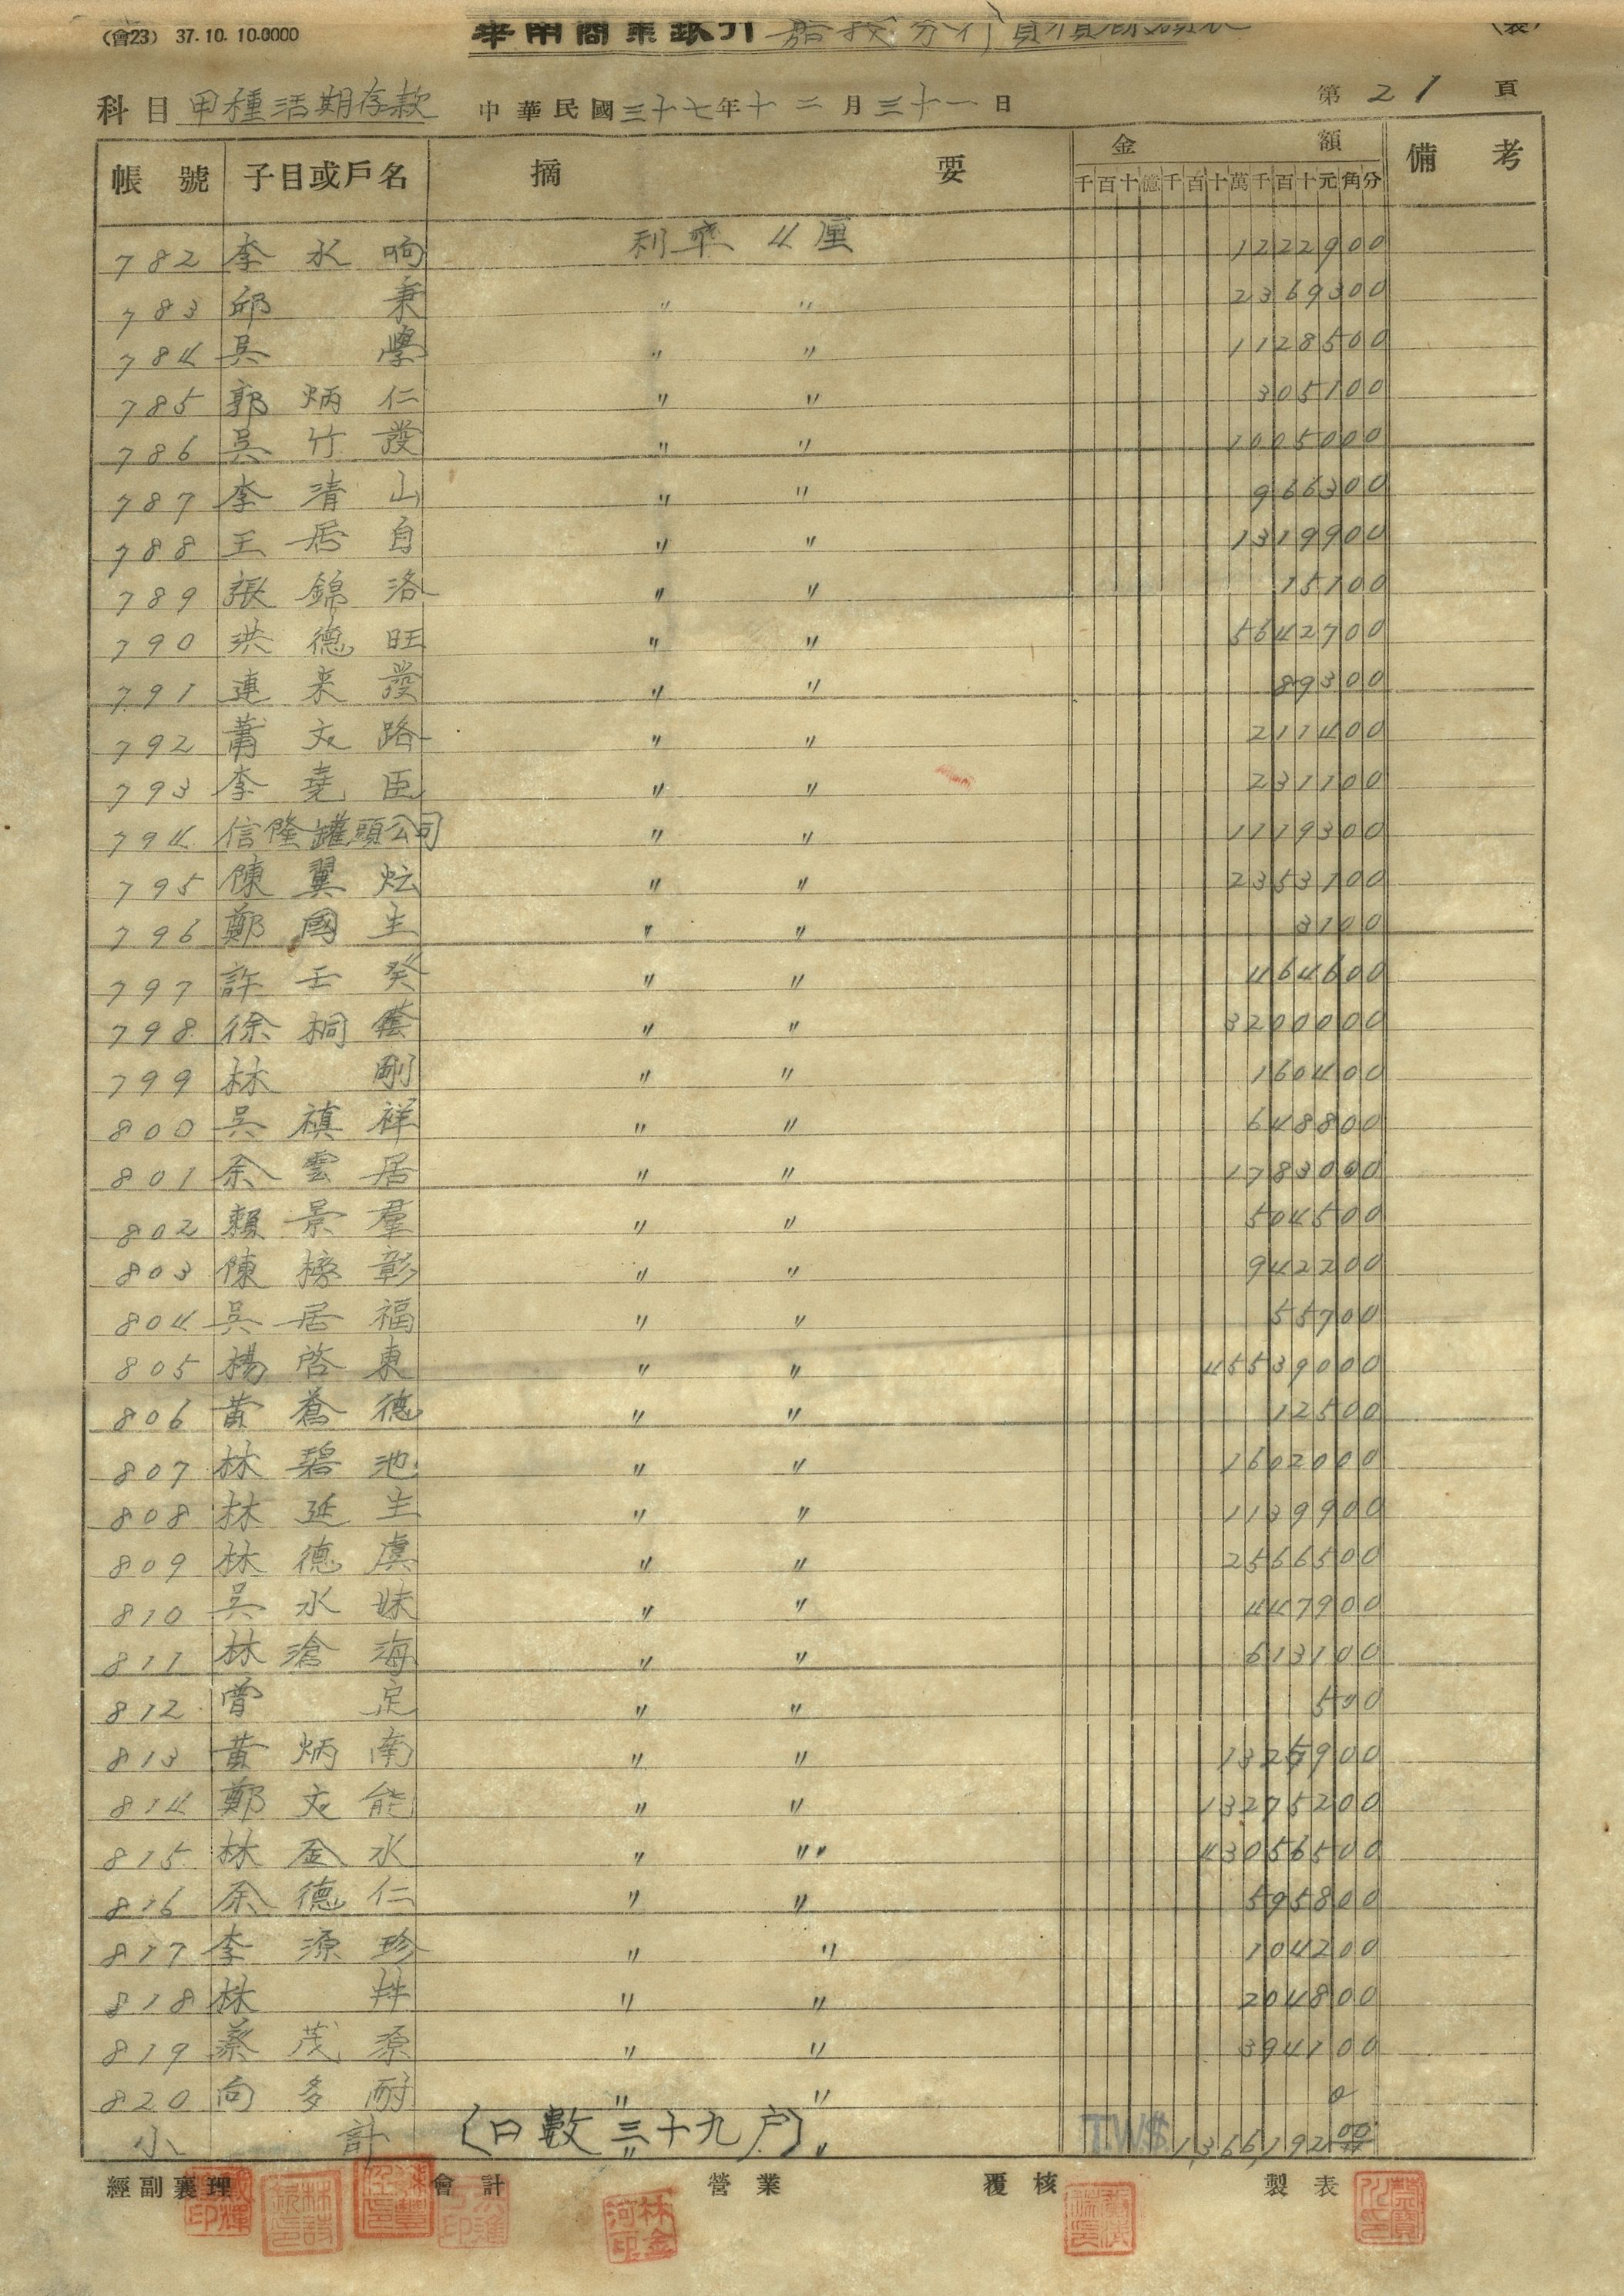 (會23) 37.10.10.0000 華南商業銀行 嘉義分行資負債明細表 (表)
科目 甲種活期存款 中華民國三十七年十二月三十一日 第21頁
帳號 子目或戶名 摘要 金額 備考
千百十億千百十萬千百十元角分
782 李水响 利率 4厘 1222900
783 邱秉 〃 〃 2369300
784 吳學 〃 〃 1128500
785 郭炳仁 〃 〃 305100
786 吳竹發 〃 〃 1005000
787 李清山 〃 〃 966300
788 王居自 〃 〃 1319900
789 張錦洛 〃 〃 15100
790 洪德旺 〃 〃 5642700
791 連来發 〃 〃 89300
792 蕭文路 〃 〃 211400
793 李堯臣 〃 〃 231100
794 信隆罐頭公司 〃 〃 1119300
795 陳翼炫 〃 〃 2353100
796 鄭國主 〃 〃 3100
797 許壬癸 〃 〃 464600
798 徐桐蔭 〃 〃 3200000
799 林剛 〃 〃 160400
800 吳禛祥 〃 〃 648800
801 余雲居 〃 〃 1783000
802 賴景羣 〃 〃 504500
803 陳榜彰 〃 〃 942200
804 吳居福 〃 〃 55700
805 楊啓東 〃 〃 45539000
806 黃蒼德 〃 〃 12500
807 林碧池 〃 〃 1602000
808 林延生 〃 〃 1139900
809 林德虞 〃 〃 2566500
810 吳水妹 〃 〃 447900
811 林滄海 〃 〃 613100
812 曾定 〃 〃 500
813 黃炳南 〃 〃 1325900
814 鄭文能 〃 〃 13275200
815 林金水 〃 〃 43056500
816 余德仁 〃 〃 595800
817 李源珍 〃 〃 104200
818 林 〃 〃 204800
819 蔡茂源 〃 〃 394100
820 向多耐 〃 〃 0
小計 (口數三十九户) 〃 〃 TW$ 1,366,192 00
經副襄理 會計 營業 覆核 製表
林金河印